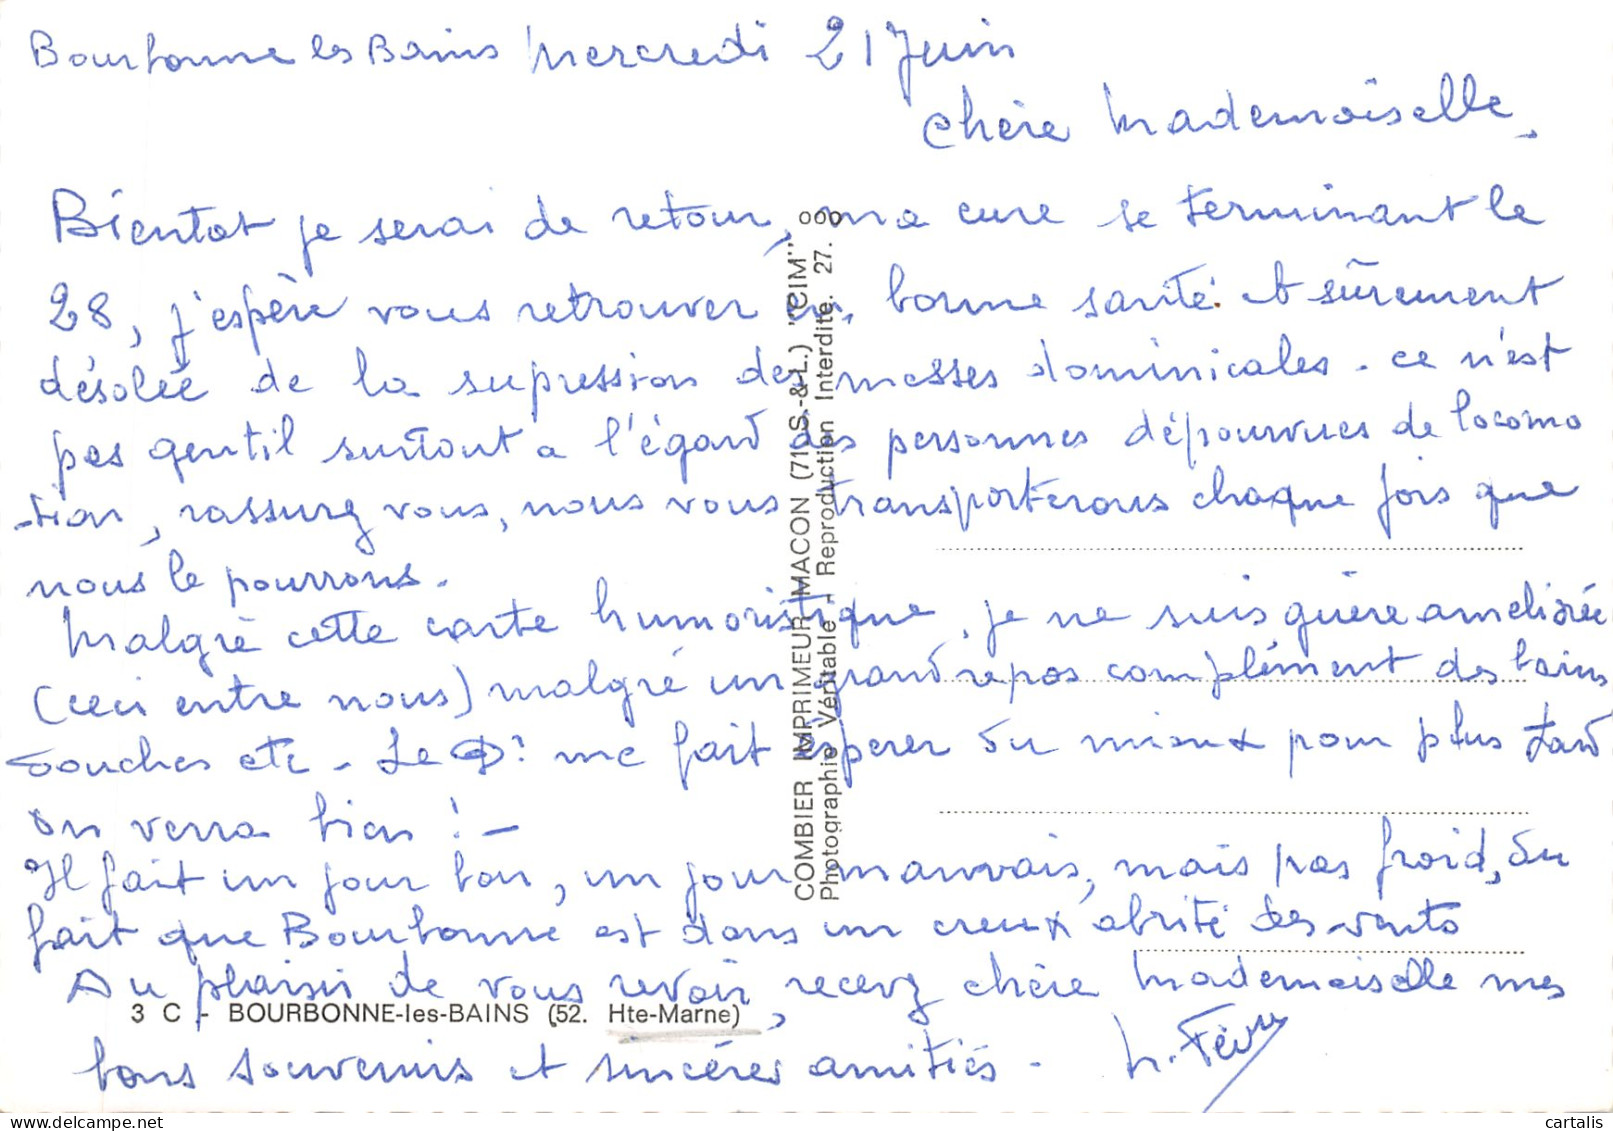 Bourbonne les Bains Mercredi 21 Juin
Chère Mademoiselle,
Bientot je serai de retour, ma cure se terminant le
28, j'espère vous retrouver en bonne santé et sûrement
désolée de la supression des messes dominicales. ce n'est
pas gentil surtout a l'égard des personnes dépourvues de locomo
-tion, rassurez vous, nous vous transporterons chaque fois que
nous le pourrons.
Malgré cette carte humoristique, je ne suis guère améliorée
(ceci entre nous) malgré un grand repos complément des bains
douches etc - Le Dr me fait espérer du mieux pour plus tard
on verra bien ! -
Il fait un jour bon, un jour mauvais, mais pas froid, du
fait que Bourbonne est dans un creux abrité des vents
Au plaisir de vous revoir, recevez chère Mademoiselle mes
3 C - BOURBONNE-les-BAINS (52. Hte-Marne)
bons souvenirs et sincères amitiés -
COMBIER IMPRIMEUR MACON (71 S.-&-L.) "CIM"
Photographie Véritable - Reproduction Interdite. 27. ooo
cartalis